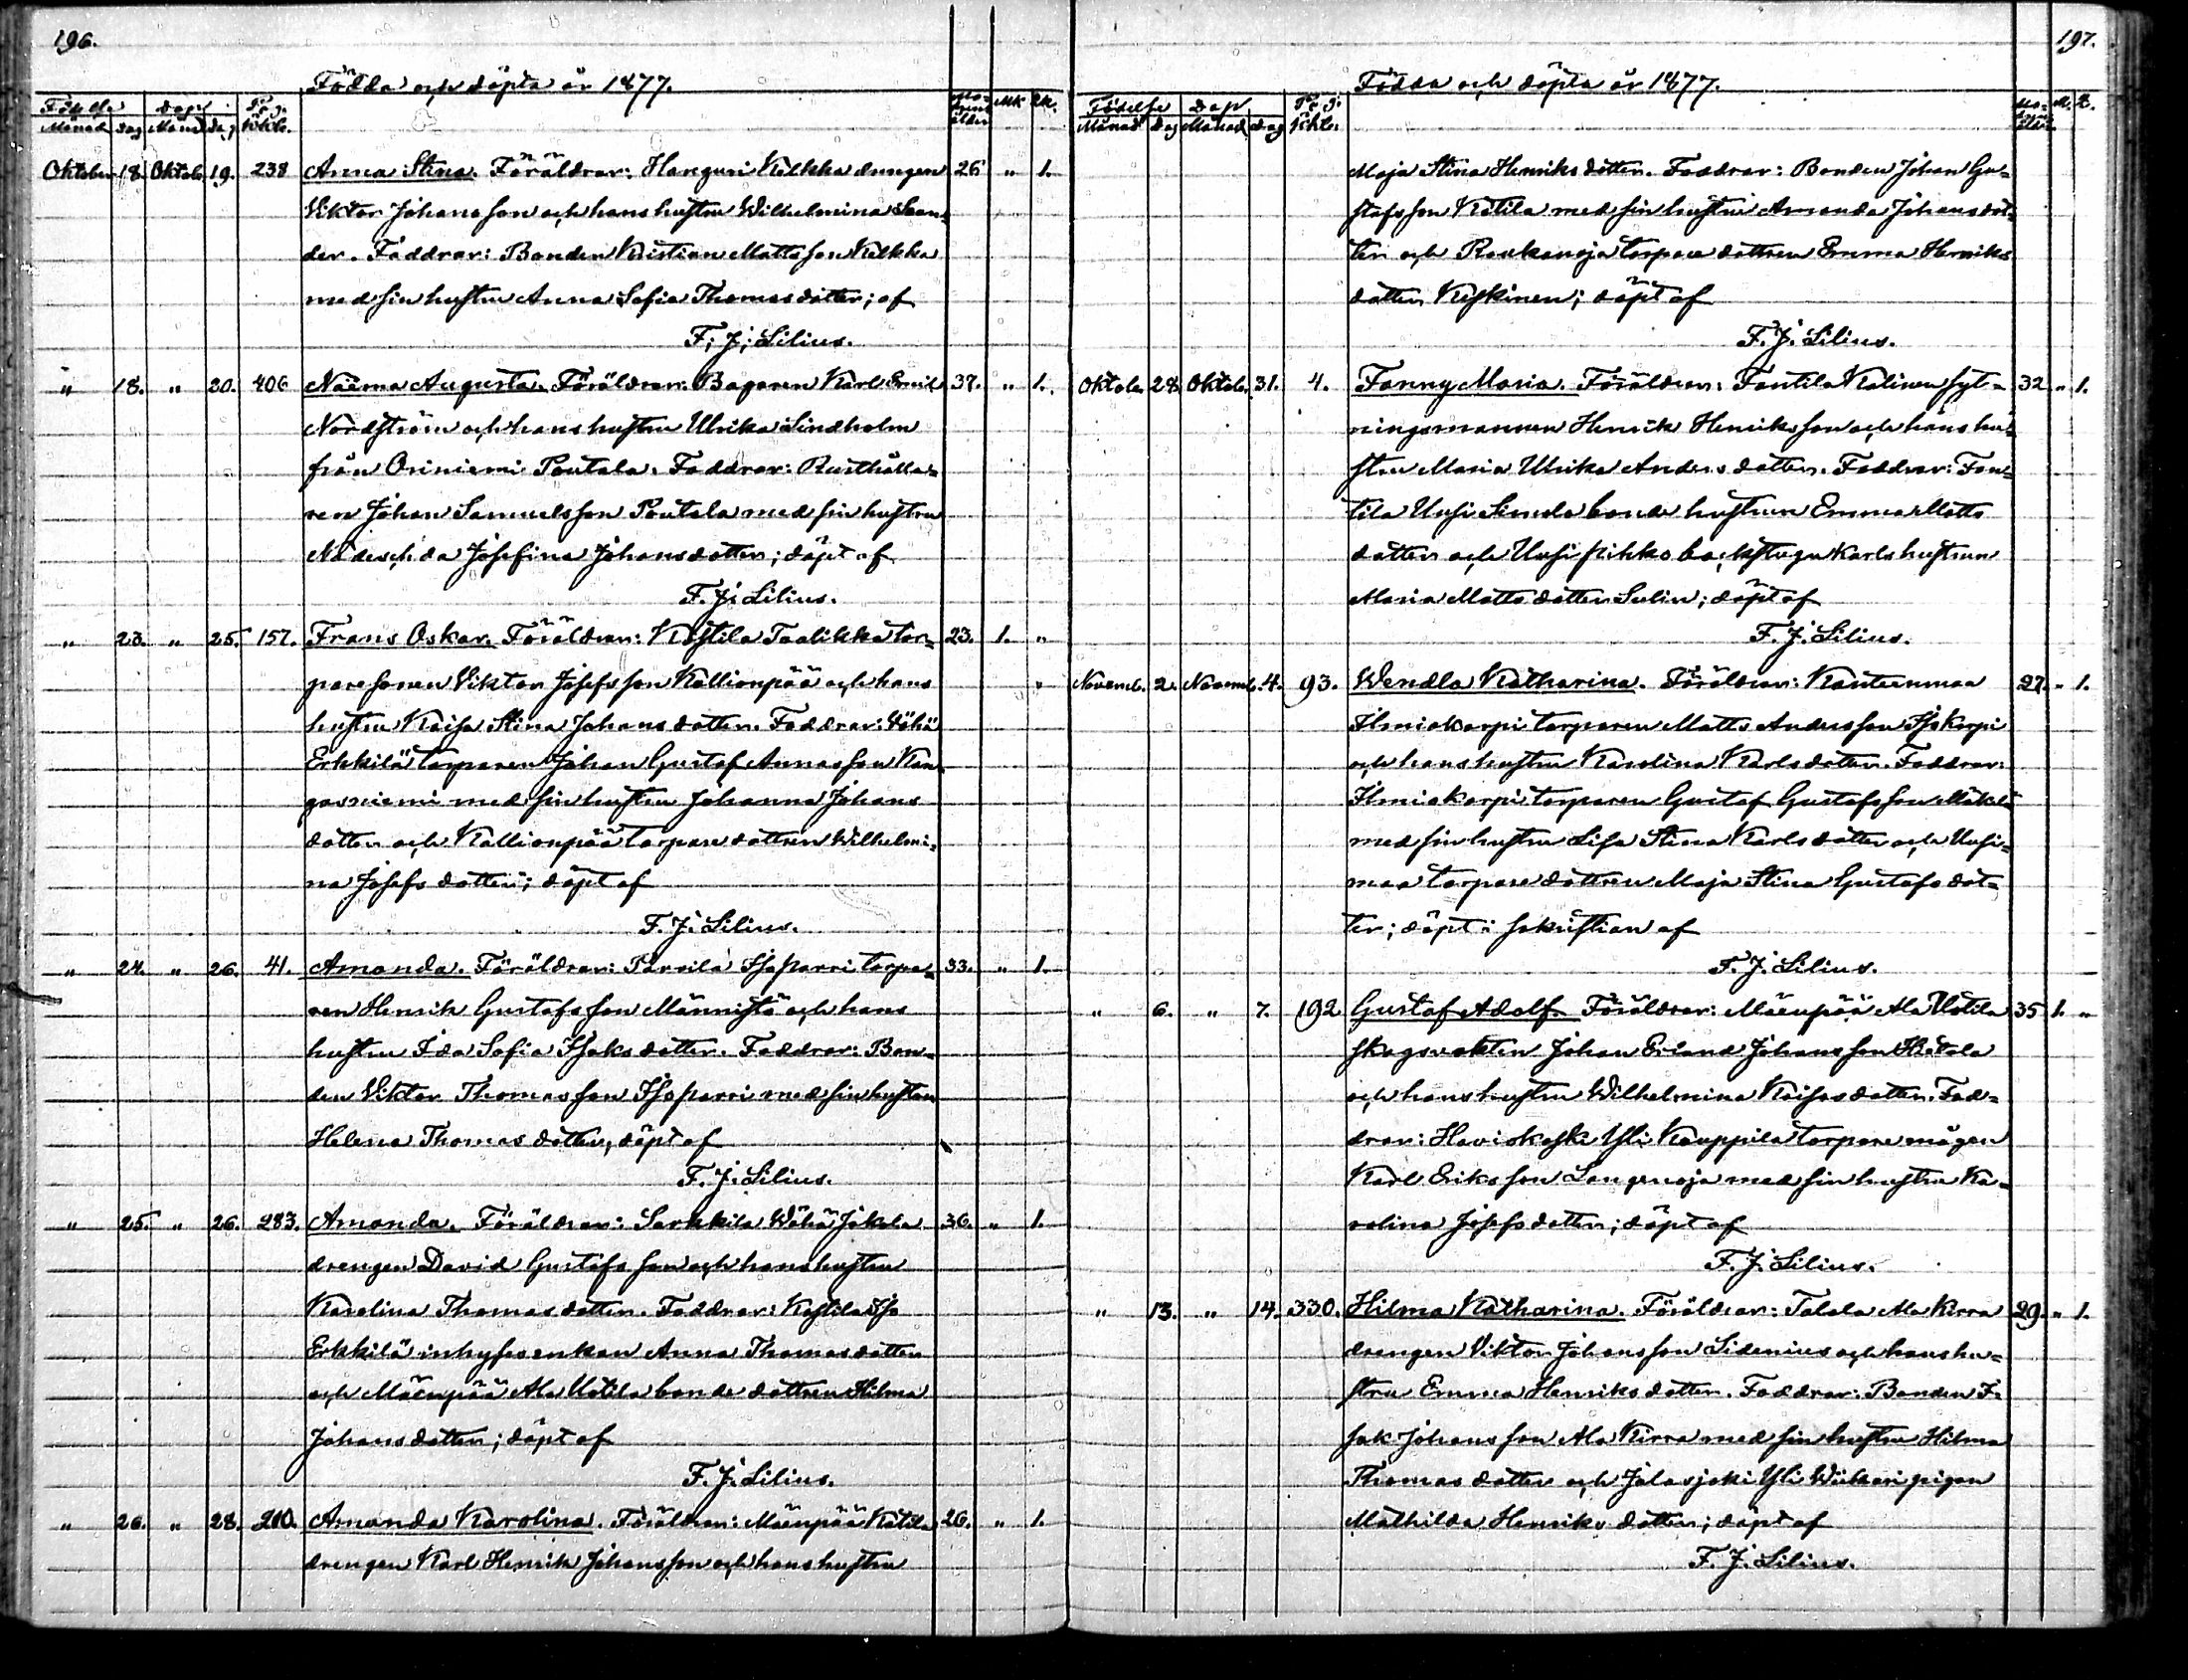 196.
Födda och döpta år 1877.
Födelse Dop Pag.
Månad Dag Månad Dag Kbk. Mk. Qk.
Oktober 18. Oktob. 19. 238 Anna Stina. Föräldrar: Hanguri Kelkka drengen 26 " 1.
Viktor Johansson och hans hustru Wilhelmina San-
der. Faddrar: Bonden Kristian Mattsson Kelkka
med sin hustru Anna Sofia Thomasdotter; af
F. J. Lilius.
" 18. " 20. 406 Naëma Augusta. Föräldrar: Bagaren Karl Emil 37. " 1.
Nordström och hans hustru Ulrika Lindholm
från Oriniemi Poutala. Faddrar: Rusthålla-
ren Johan Samuelsson Poutala med sin hustru
Nadeschda Josefina Johansdotter; döpt af
F. J. Lilius.
" 23. " 25. 157. Frans Oskar. Föräldrar: Kostila Taalikka tor- 23. 1. "
paresonen Viktor Josefsson Kallionpää och hans
hustru Kaisa Stina Johansdotter. Faddrar: Wähä
Erkkilä torparen Johan Gustaf Annasson Kan-
gasniemi med sin hustru Johanna Johans
dotter och Kallionpää torpare dottren Wilhelmi-
na Josefs dotter; döpt af
F. J. Lilius.
" 24. " 26. 41. Amanda. Föräldrar: Parvila Isoparri torpa- 33. " 1.
ren Henrik Gustafsson Männistö och hans
hustru Ida Sofia Isaksdotter. Faddrar: Bon-
den Viktor Thomasson Isoparri med sin hustru
Helena Thomasdotter; döpt af
F. J. Lilius.
" 25. " 26. 283. Amanda. Föräldrar: Sarkkila Wähä Jokela 36. " 1.
drengen David Gustafsson och hans hustru
Karolina Thomasdotter. Faddrar: Kostila Iso
Erkkilä inhyses enkan Anna Thomasdotter
och Mäenpää Ala Uotila bonde dottren Hilma
Johansdotter; döpt af
F. J. Lilius.
" 26. " 28. 210. Amanda Karolina. Föräldrar: Mäenpää Katila 26. " 1.
drengen Karl Henrik Johansson och hans hustru
197.
Födda och döpta år 1877.
Födelse Dop Pag.
Månad Dag Månad Dag Kbk. M. Q.
Maja Stina Henriksdotter. Faddrar: Bonden Johan Gu-
stafsson Katila med sin hustru Amanda Johansdot-
ter och Raukanoja torpare dottren Emma Henriks
dotter Keskinen; döpt af
F. J. Lilius.
Oktob. 28. Oktob. 31. 4. Fanny Maria. Föräldrar: Fantila Kalinen syt- 32 " 1.
ningsmannen Henrik Henriksson och hans hu-
stru Maria Ulrika Andersdotter. Faddrar: Fan-
tila Uusi Simula bonde hustrun Emma Matts
dotter och Uusi pihko backstugu karls hustrun
Maria Mattsdotter Sulin; döpt af
F. J. Lilius.
Novemb. 2. Novemb. 4. 93. Wendla Katharina. Föräldrar: Kanteenmaa 27. " 1.
Ilmiokorpi torparen Matts Andersson Isokorpi
och hans hustru Karolina Karlsdotter. Faddrar:
Ilmiokorpi torparen Gustaf Gustafsson Mäkelä
med sin hustru Lisa Stina Karlsdotter och Uusi-
maa torpare dottren Maja Stina Gustafsdot-
ter; döpt i sakristian af
F. J. Lilius.
" 6. " 7. 192 Gustaf Adolf. Föräldrar: Mäenpää Ala Uotila 35 1. "
skogsvakten Johan Erland Johansson Hietala
och hans hustru Wilhelmina Kaisasdotter. Fad-
drar: Haviokoski Yli Kauppila torpare mågen
Karl Eriksson Langenoja med sin hustru Ka-
rolina Josefsdotter; döpt af
F. J. Lilius.
" 13. " 14. 330. Hilma Katharina. Föräldrar: Talala Ala Kirra 29. " 1.
drengen Viktor Johansson Sidenius och hans hu-
stru Emma Henriksdotter. Faddrar: Bonden I-
sak Johansson Ala Kirra med sin hustru Hilma
Thomasdotter och Jalasjoki Yli Wiikari pigan
Mathilda Henriksdotter; döpt af
F. J. Lilius.